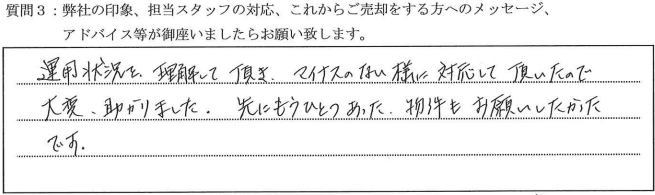 質問3：弊社の印象、担当スタッフの対応、これからご売却をする方へのメッセージ、
アドバイス等が御座いましたらお願い致します。
運用状況を、理解して頂き、マイナスのない様に対応して頂いたので
大変、助かりました。先にもうひとつあった、物件もお願いしたかった
です。